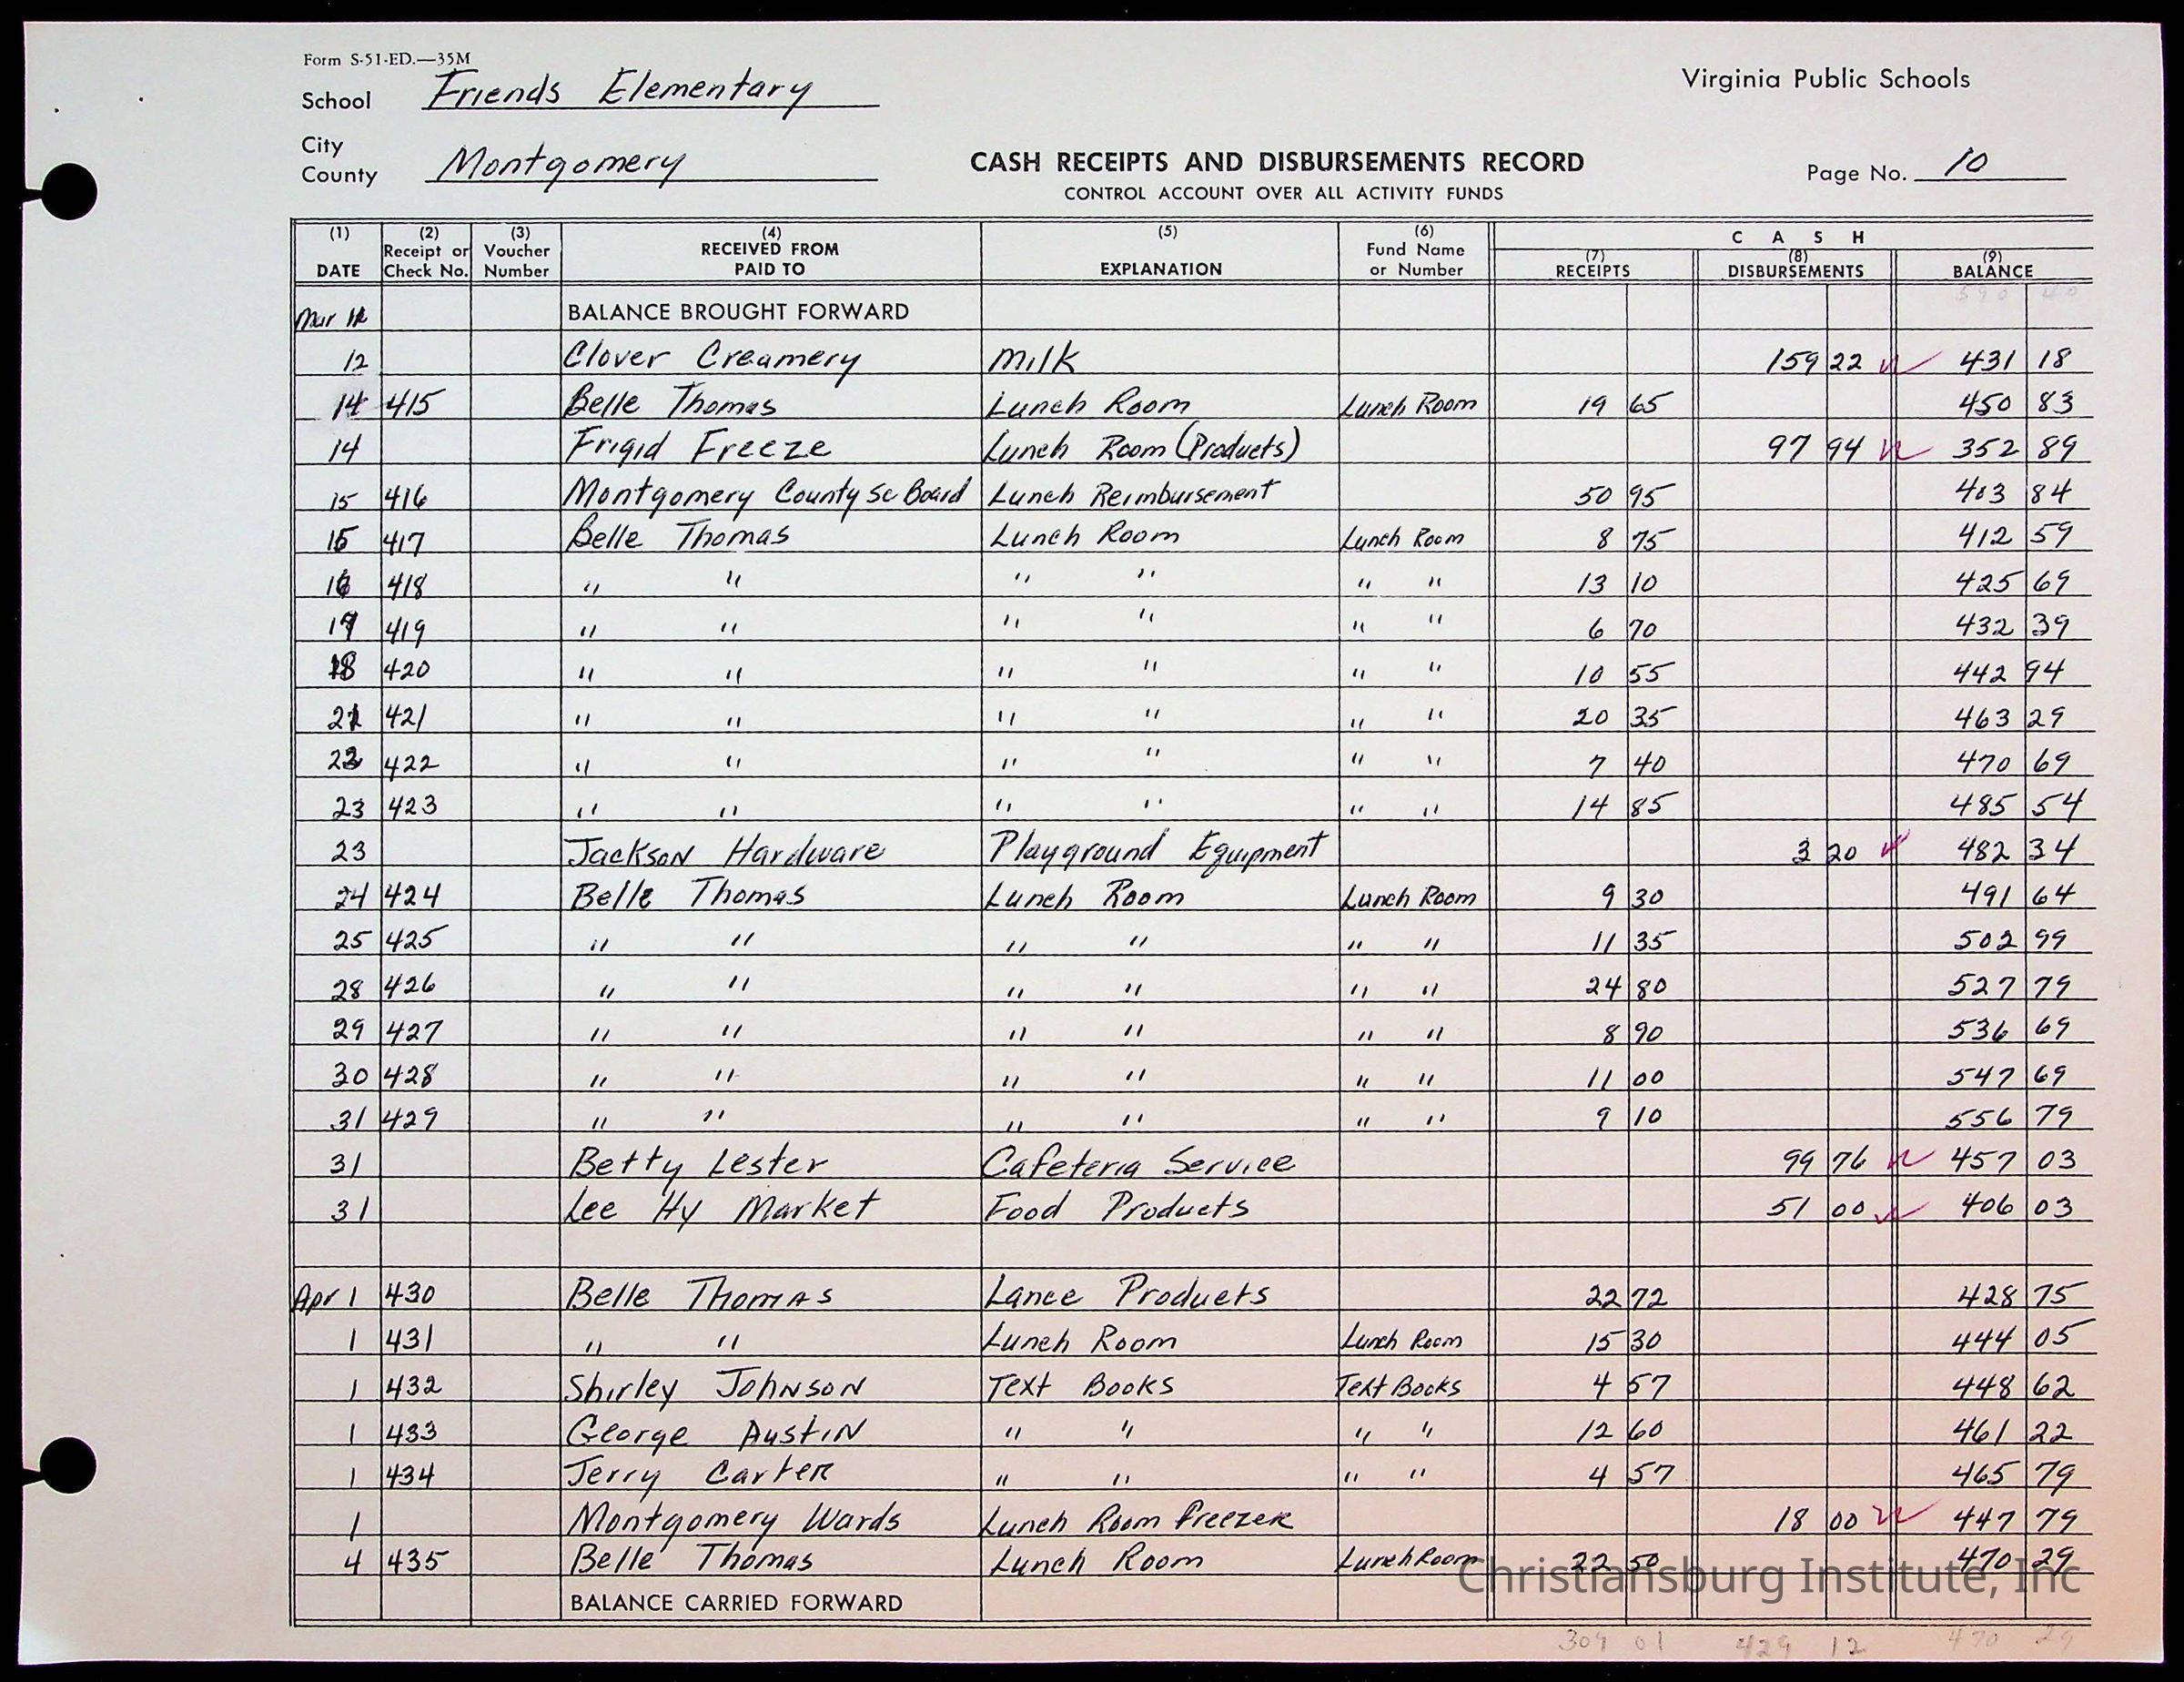 Form S-51-ED.—35M
School Friends Elementary
Virginia Public Schools
City
County Montgomery
CASH RECEIPTS AND DISBURSEMENTS RECORD
CONTROL ACCOUNT OVER ALL ACTIVITY FUNDS
Page No. 10
(1) DATE (2) Receipt or Check No. (3) Voucher Number (4) RECEIVED FROM PAID TO (5) EXPLANATION (6) Fund Name or Number CASH (7) RECEIPTS (8) DISBURSEMENTS (9) BALANCE
Mar BALANCE BROUGHT FORWARD 590 40
12 Clover Creamery Milk 159 22 431 18
14 415 Belle Thomas Lunch Room Lunch Room 19 65 450 83
14 Frigid Freeze Lunch Room (Products) 97 94 352 89
15 416 Montgomery County Sc Board Lunch Reimbursement 50 95 403 84
15 417 Belle Thomas Lunch Room Lunch Room 8 75 412 59
16 418 " " " " " " 13 10 425 69
17 419 " " " " " " 6 70 432 39
18 420 " " " " " " 10 55 442 94
21 421 " " " " " " 20 35 463 29
22 422 " " " " " " 7 40 470 69
23 423 " " " " " " 14 85 485 54
23 Jackson Hardware Playground Equipment 3 20 482 34
24 424 Belle Thomas Lunch Room Lunch Room 9 30 491 64
25 425 " " " " " " 11 35 502 99
28 426 " " " " " " 24 80 527 79
29 427 " " " " " " 8 90 536 69
30 428 " " " " " " 11 00 547 69
31 429 " " " " " " 9 10 556 79
31 Betty Lester Cafeteria Service 99 76 457 03
31 Lee Hy Market Food Products 51 00 406 03
Apr 1 430 Belle Thomas Lance Products 22 72 428 75
1 431 " " Lunch Room Lunch Room 15 30 444 05
1 432 Shirley Johnson Text Books Text Books 4 57 448 62
1 433 George Austin " " " " 12 60 461 22
1 434 Jerry Carter " " " " 4 57 465 79
1 Montgomery Wards Lunch Room Freezer 18 00 447 79
4 435 Belle Thomas Lunch Room Lunch Room 22 50 470 29
Christiansburg Institute, Inc
BALANCE CARRIED FORWARD
309 01 429 12 470 29